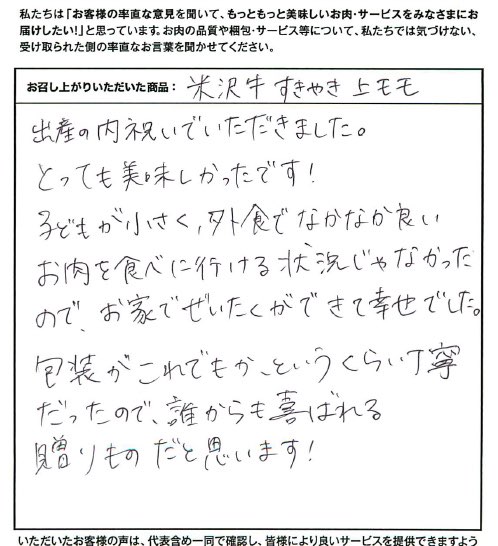 私たちは「お客様の率直な意見を聞いて、もっともっと美味しいお肉・サービスをみなさまにお
届けしたい!」と思っています。お肉の品質や梱包・サービス等について、私たちでは気づけない、
受け取られた側の率直なお言葉を聞かせてください。
お召し上がりいただいた商品: 米沢牛 すきやき 上モモ
出産の内祝いでいただきました。
とっても美味しかったです!
子どもが小さく、外食でなかなか良い
お肉を食べに行ける状況じゃなかった
ので、お家でぜいたくができて幸せでした。
包装がこれでもか、というくらい丁寧
だったので、誰からも喜ばれる
贈りものだと思います!
いただいたお客様の声は、代表含め一同で確認し、皆様により良いサービスを提供できますよう